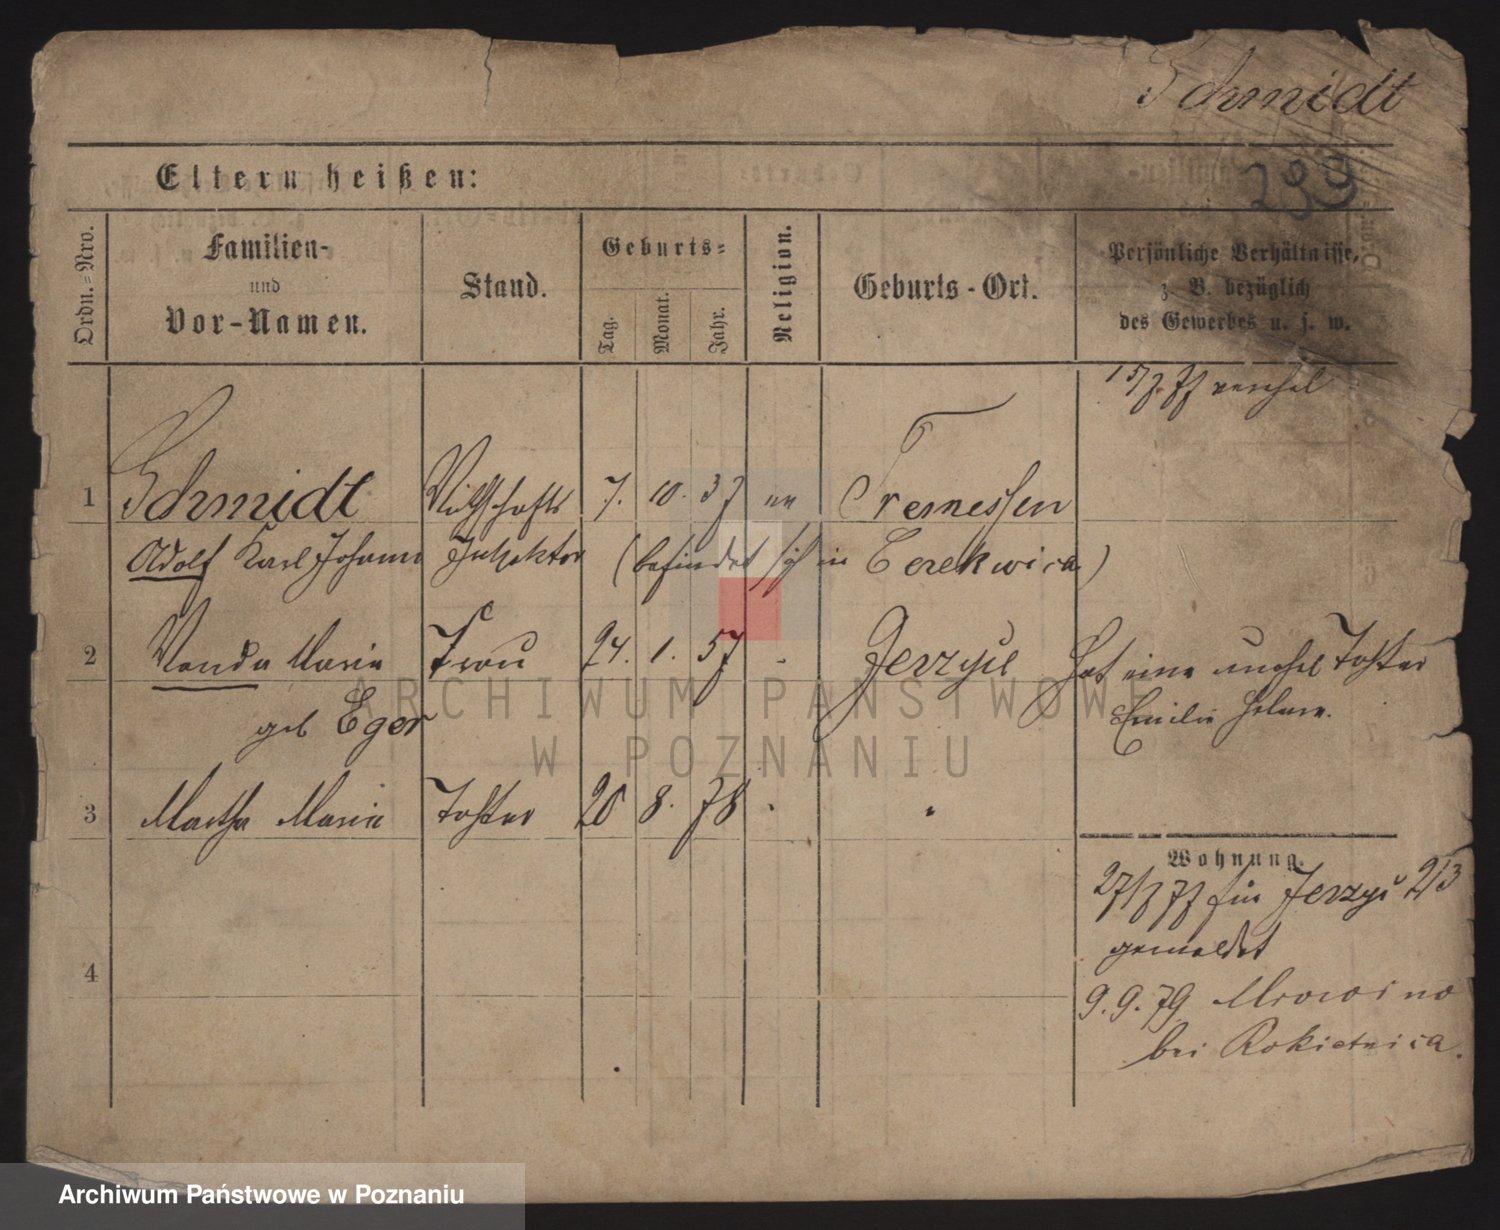 Schmidt
239
Eltern heißen:
Ordn.=Nro.
Familien-
und
Vor-Namen.
Stand.
Geburts=
Tag.
Monat.
Jahr.
Religion.
Geburts-Ort.
Persönliche Verhältnisse,
z. B. bezüglich
des Gewerbes u. s. w.
1 Schmidt Wirthschafts 7. 10. 37 Tremessen
Adolf Karl Johann Inspektor (befindet sich in Cerekwica)
2 Wanda Maria Frau 24. 1. 57 - Jerzyce Hat eine unehel Tochter
geb Eger Emilie
3 Martha Maria Tochter 20 8. 78 " "
Wohnung.
für Jerzyce 213
gemeldet
4
9. 9. 79 Mrowino
bei Rokietnica.
ARCHIWUM PAŃSTWOWE
W POZNANIU
Archiwum Państwowe w Poznaniu